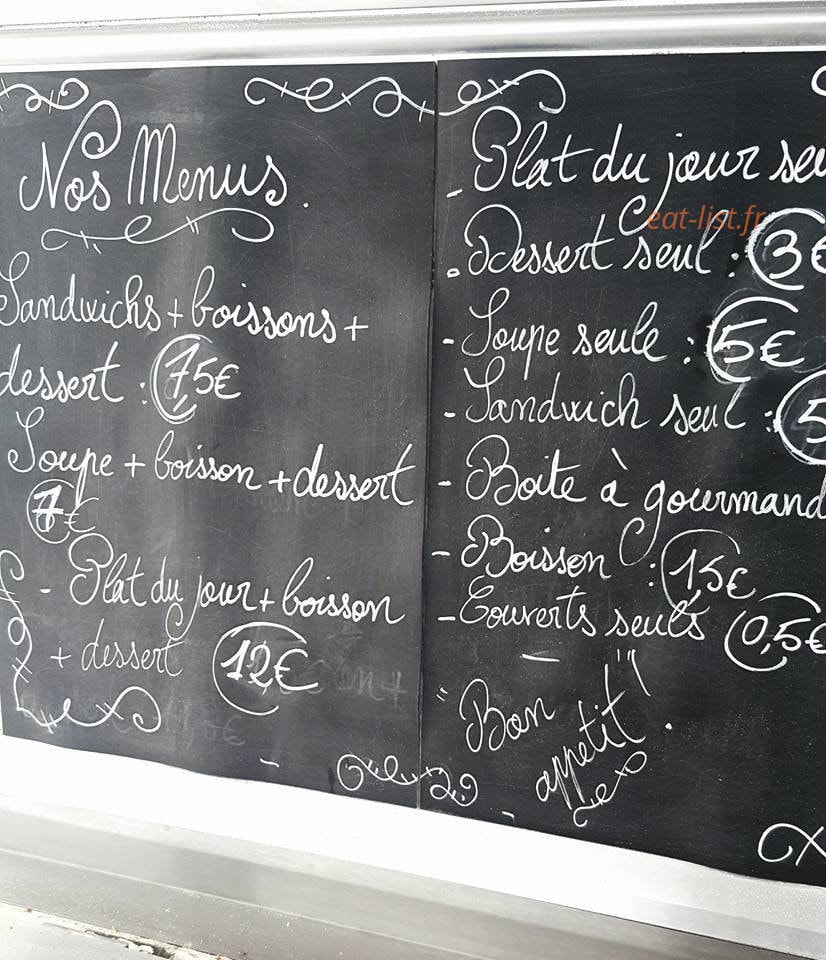 Nos Menus.
Sandwichs + boissons +
dessert : 7,5€
Soupe + boisson + dessert
7€
- Plat du jour + boisson
+ dessert 12€
- Plat du jour seu
eat-list.fr
- Dessert seul : 3€
- Soupe seule : 5€
- Sandwich seul : 5
- Boite à gourmand
- Boisson : 1,5€
- Couverts seuls 0,5€
"Bon
appetit"!